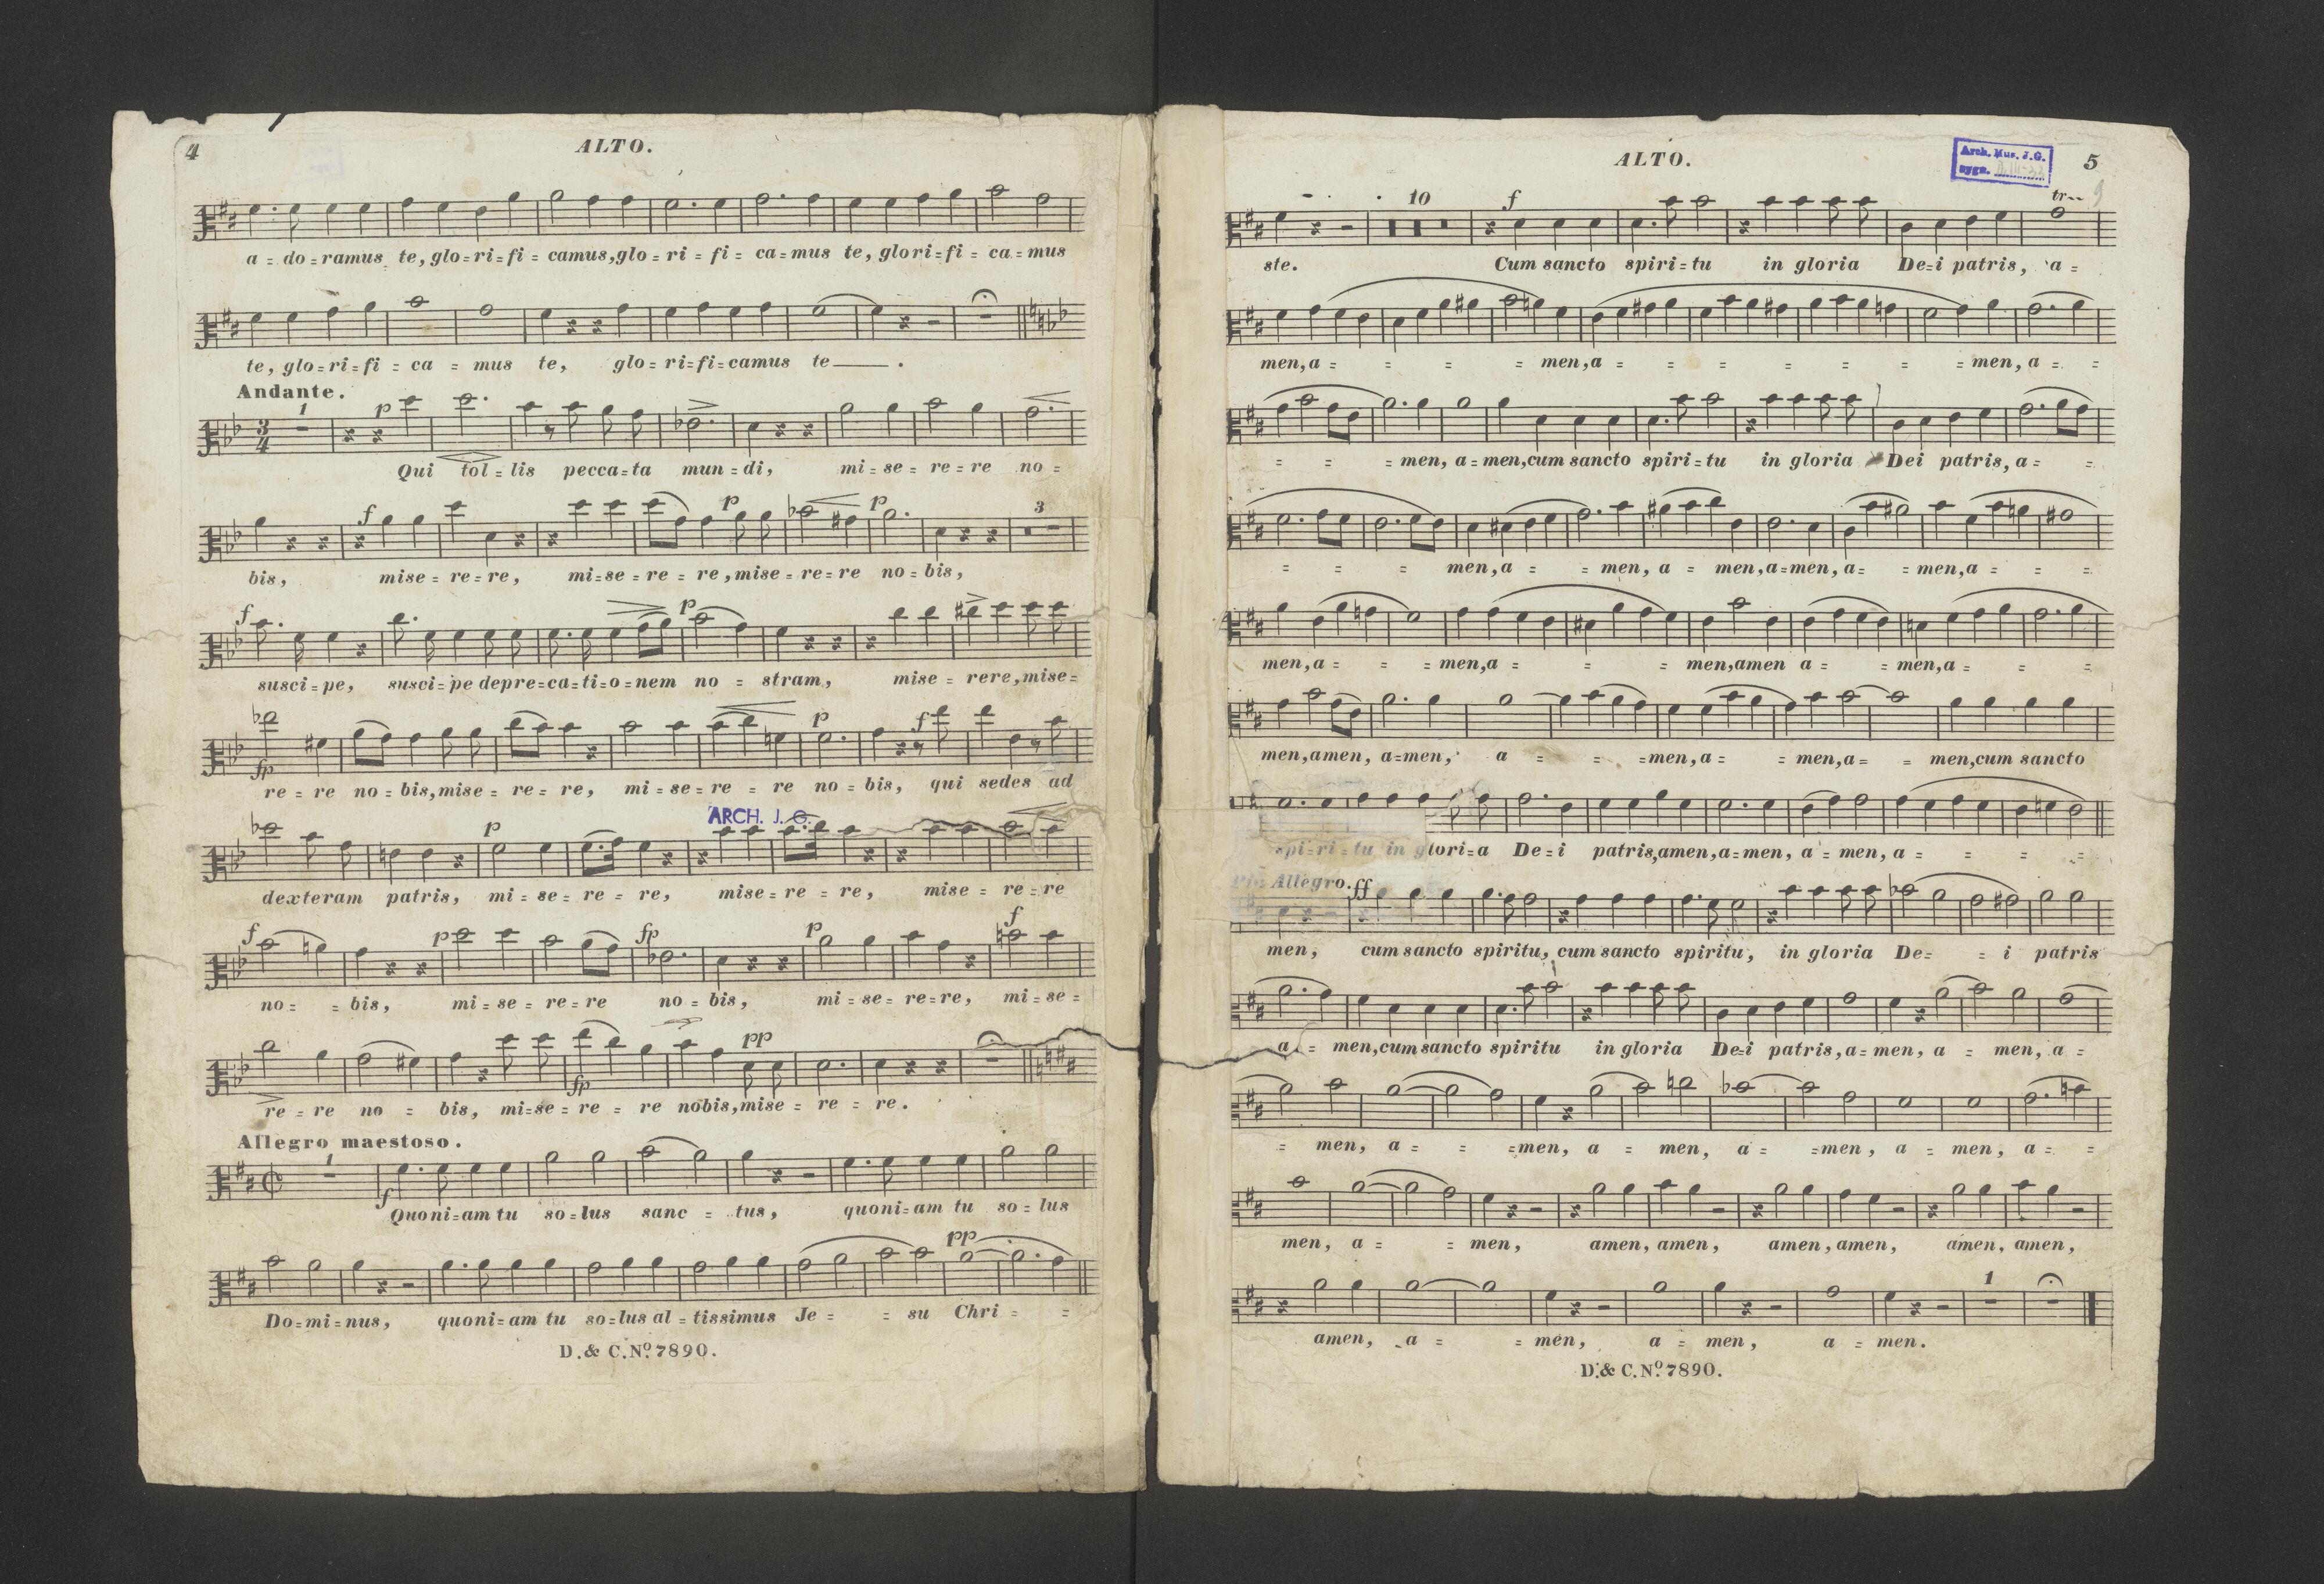 4
ALTO.
a = do = ramus te, glo = ri = fi = camus, glo = ri = fi = ca = mus te, glori = fi = ca = mus
te, glo = ri = fi = ca = mus te, glo = ri = fi = camus te.
Andante.
1
p
3
4
Qui tol = lis pecca = ta mun = di, mi = se = re = re no =
f
p
p
3
bis, mise = re = re, mi = se = re = re, mise = re = re no = bis,
f
p
susci = pe, susci = pe depre = ca = ti = o = nem no = stram, mise = rere, mise =
fp
p
f
re = re no = bis, mise = re = re, mi = se = re = re no = bis, qui sedes ad
ARCH. J. G.
p
dexteram patris, mi = se = re = re, mise = re = re, mise = re = re
f
p
fp
p
f
no = = bis, mi = se = re = re no = bis, mi = se = re = re, mi = se =
fp
pp
re = re no = bis, mi = se = re = re nobis, mise = re = re.
Allegro maestoso.
1
f
Quoni = am tu so = lus sanc = tus, quoni = am tu so = lus
pp
Do = mi = nus, quoni = am tu so = lus al = tissimus Je = = su Chri = =
D. & C. No. 7890.
ALTO.
Arch. Mus. J.G.
sygn.
5
9
10
f
tr
ste. Cum sancto spiri = tu in gloria De = i patris, a =
men, a = = = = men, a = = = = = = = men, a = =
= = = men, a = men, cum sancto spiri = tu in gloria Dei patris, a = =
= = = men, a = = men, a = men, a = men, a = = men, a = = =
men, a = = = men, a = = = = men, amen a = = men, a = = =
men, amen, a = men, a = = = = men, a = = men, a = = men, cum sancto
spi = ri = tu in glori = a De = i patris, amen, a = men, a = men, a = = = =
Allegro.
ff
men, cum sancto spiritu, cum sancto spiritu, in gloria De = = i patris
a = men, cum sancto spiritu in gloria De = i patris, a = men, a = men, a =
= men, a = = = men, a = men, a = = men, a = men, a = =
men, a = = men, amen, amen, amen, amen, amen, amen,
1
amen, a = = men, a = men, a = men.
D. & C. No. 7890.